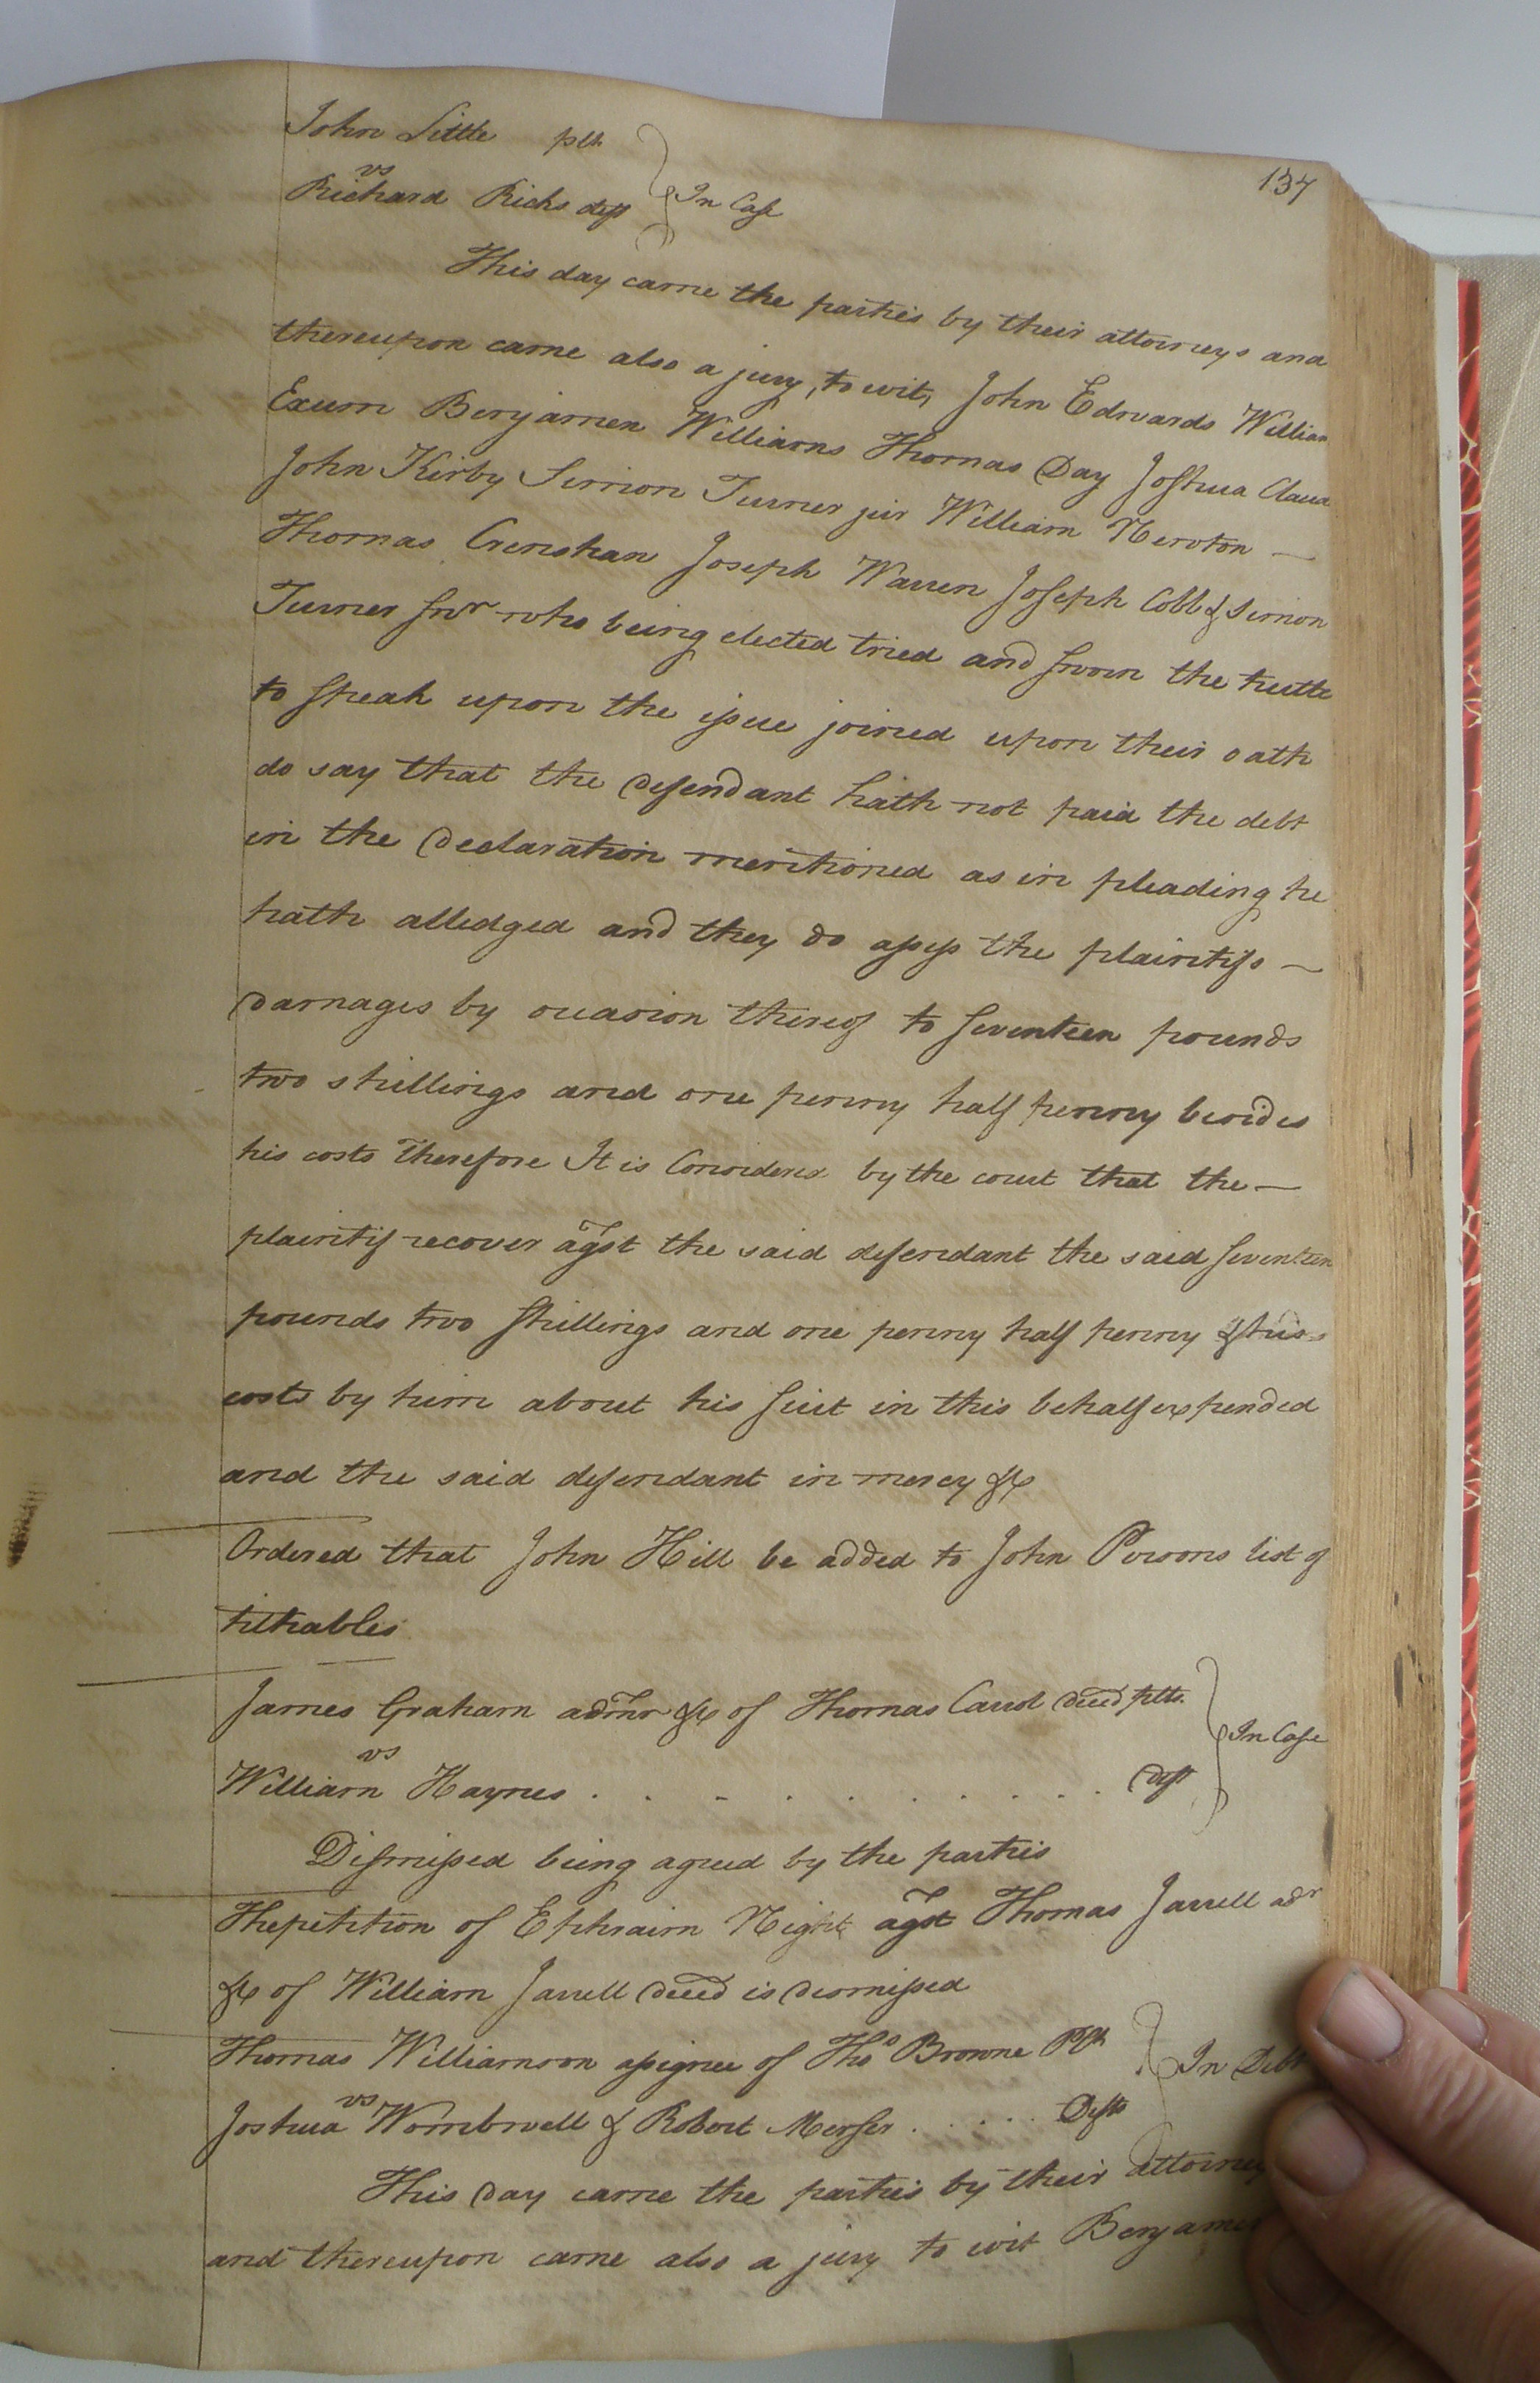 137
John Little plt
vs
Richard Ricks deft } In Case
This day came the parties by their attorneys and
thereupon came also a jury, to wit, John Edwards William
Exum Benjamen Williams Thomas Day Joshua Claud
John Kirby Simon Turner jur William Newton —
Thomas Crenshan Joseph Warren Joseph Cobb & Simon
Turner Snr who being elected tried and sworn the truth
to speak upon the issue joined upon their oath
do say that the defendant hath not paid the debt
in the declaration mentioned as in pleading he
hath alledged and they do assess the plaintifs —
damages by occasion thereof to seventeen pounds
two shillings and one penny half penny besides
his costs Therefore It is Considered by the court that the —
plaintif recover agst the said defendant the said seventeen
pounds two shillings and one penny half penny & his
costs by him about his suit in this behalf expended
and the said defendant in mercy &c
Ordered that John Hill be added to John Persons list of
tithables
James Graham admr &c of Thomas Carrol decd plts.
vs } In Case
William Haynes . . . . . . . . . . Deft
Dismissed being agreed by the parties
The petition of Ephraim Night agst Thomas Jarrell adr
&c of William Jarrell decd is dismissed
Thomas Williamson assignee of Thos Browne Plt
vs } In Debt
Joshua Wombwell & Robert Merser . . . . . Defts
This day came the parties by their attorney
and thereupon came also a jury to wit Benjamen